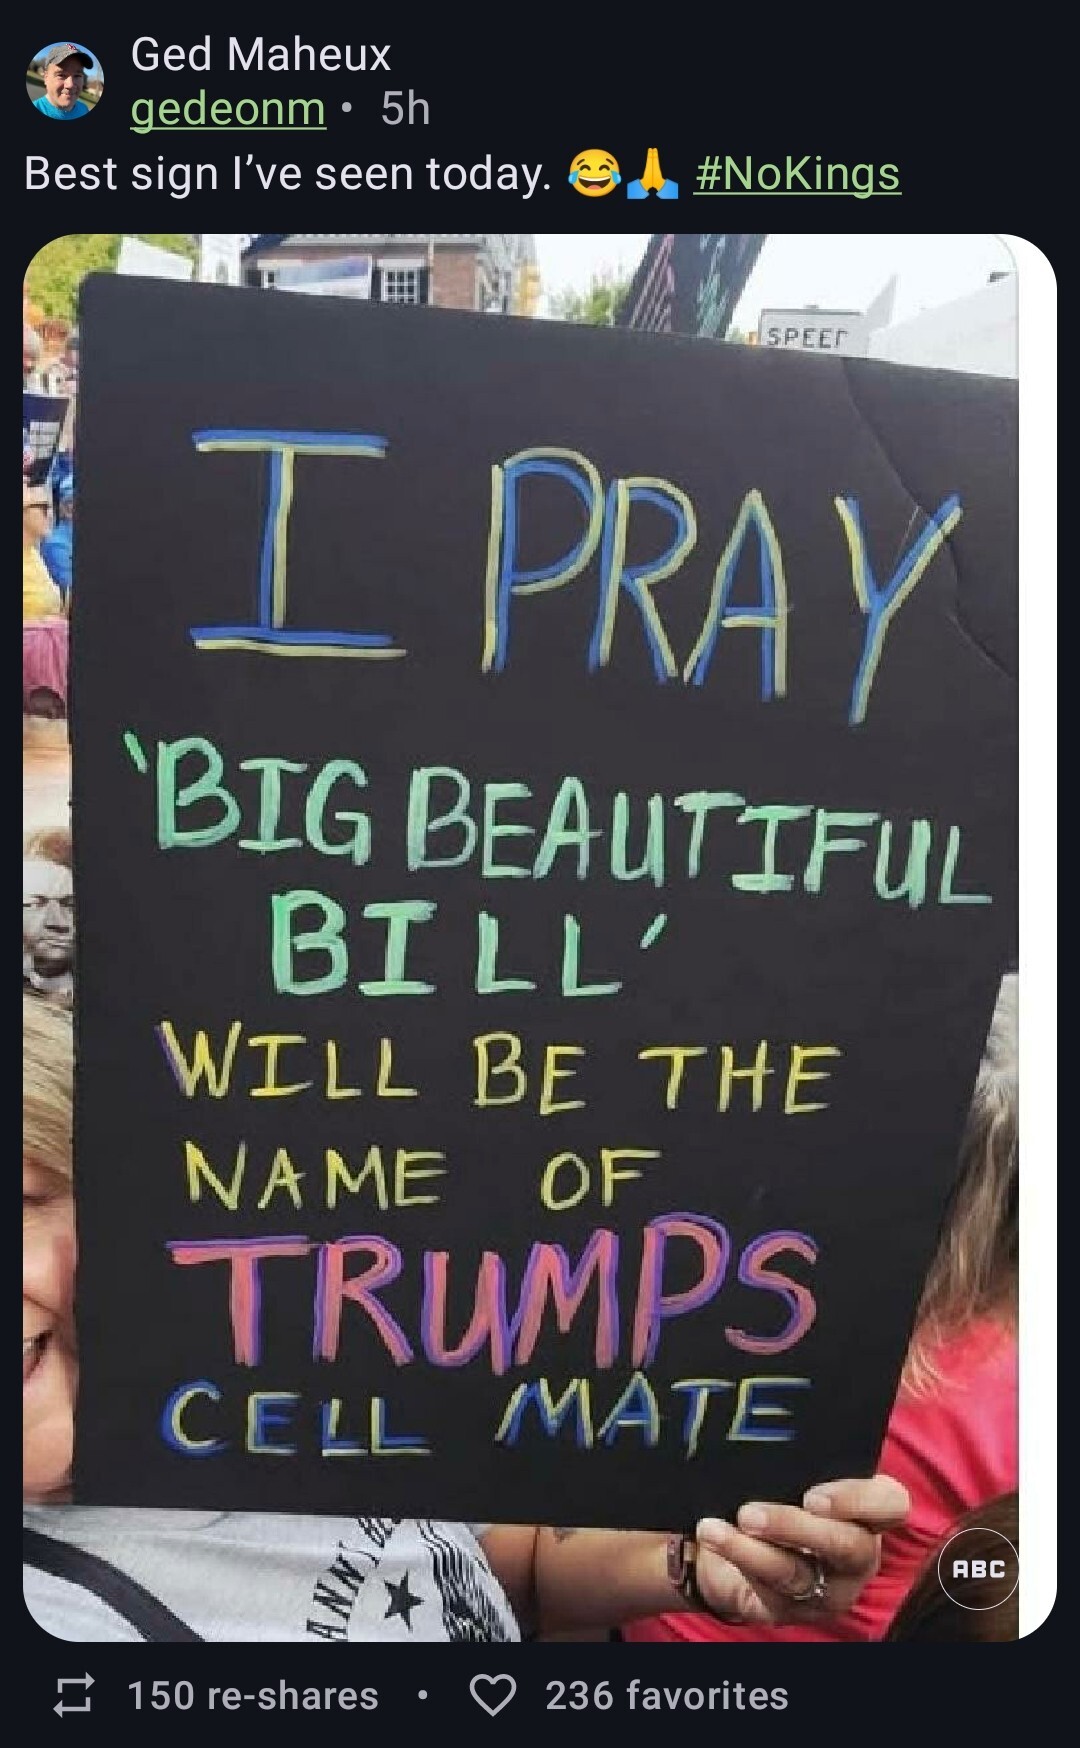 Ged Maheux
gedeonm • 5h
Best sign I’ve seen today. 😂🙏 #NoKings
SPEE
I PRAY
'BIG BEAUTIFUL
BILL'
WILL BE THE
NAME OF
TRUMPS
CELL MATE
ABC
150 re-shares • 236 favorites